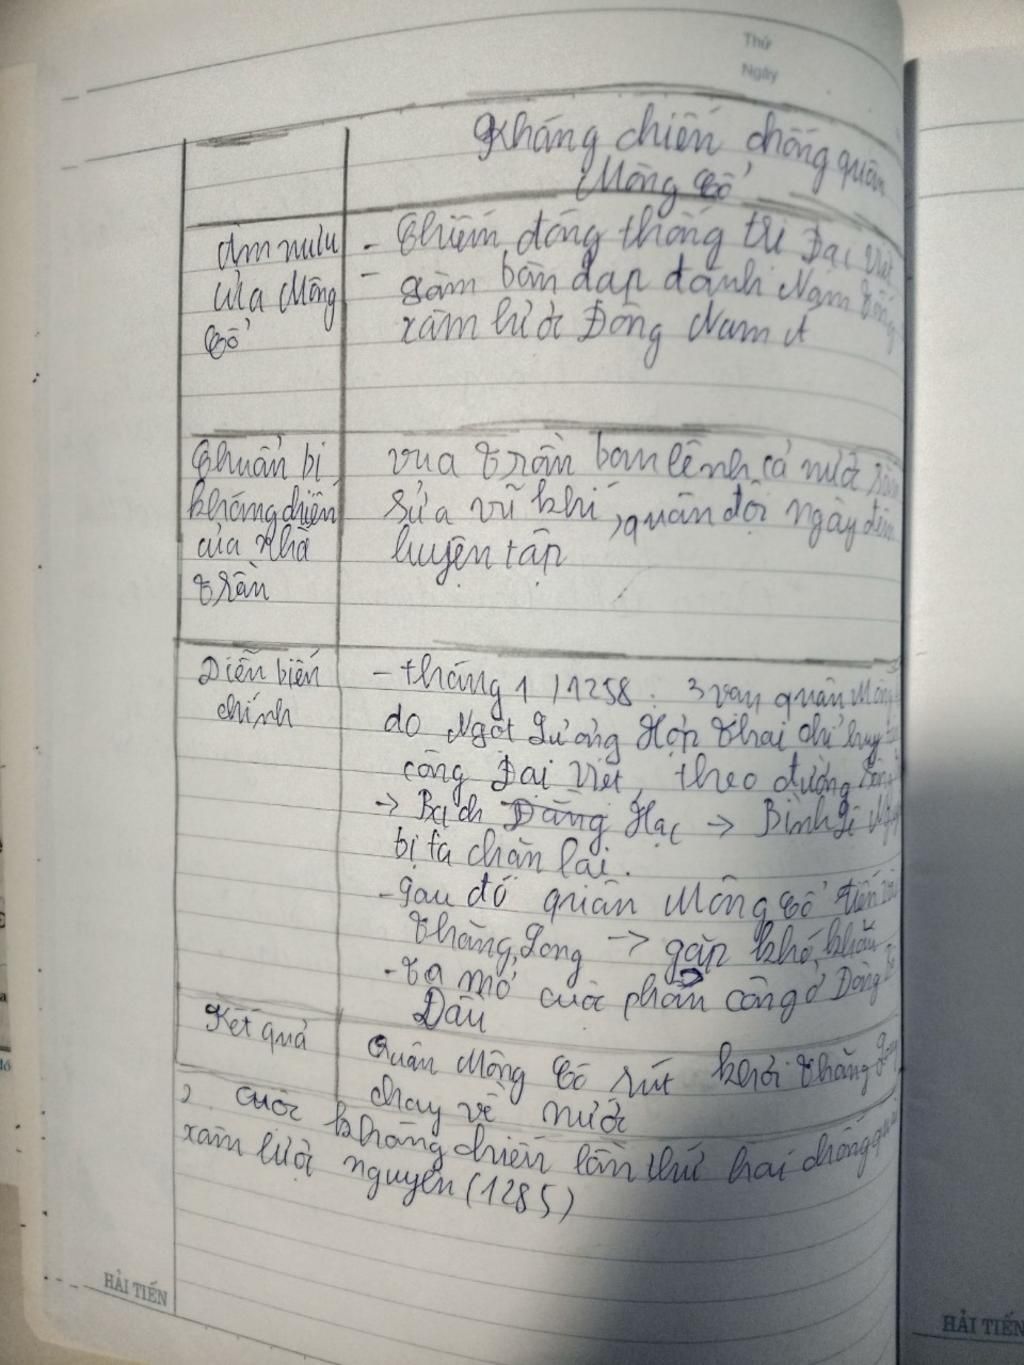 Thứ
Ngày
Kháng chiến chống quân
Mông Cổ
Âm mưu
của Mông
Cổ
- Chiếm đóng thống trị Đại Việt
- Làm bàn đạp đánh Nam Tống
xâm lược Đông Nam Á
Chuẩn bị
kháng chiến
của nhà
Trần
vua Trần ban lệnh cả nước sắm
sửa vũ khí, quân đội ngày đêm
luyện tập
Diễn biến
chính
- tháng 1/1258: 3 vạn quân Mông
do Ngột Lương Hợp Thai chỉ huy
công Đại Việt, theo đường sông
-> Bạch Đằng Hạc -> Bình Lệ
bị ta chặn lại.
- Sau đó quân Mông Cổ tiến vào
Thăng Long -> gặp khó khăn
- Ta mở cuộc phản công ở Đông Bộ
Đầu
Kết quả
Quân Mông Cổ rút khỏi Thăng Long
chạy về nước
2. cuộc kháng chiến lần thứ hai chống quân
xâm lược nguyên (1285)
HẢI TIẾN
HẢI TIẾN